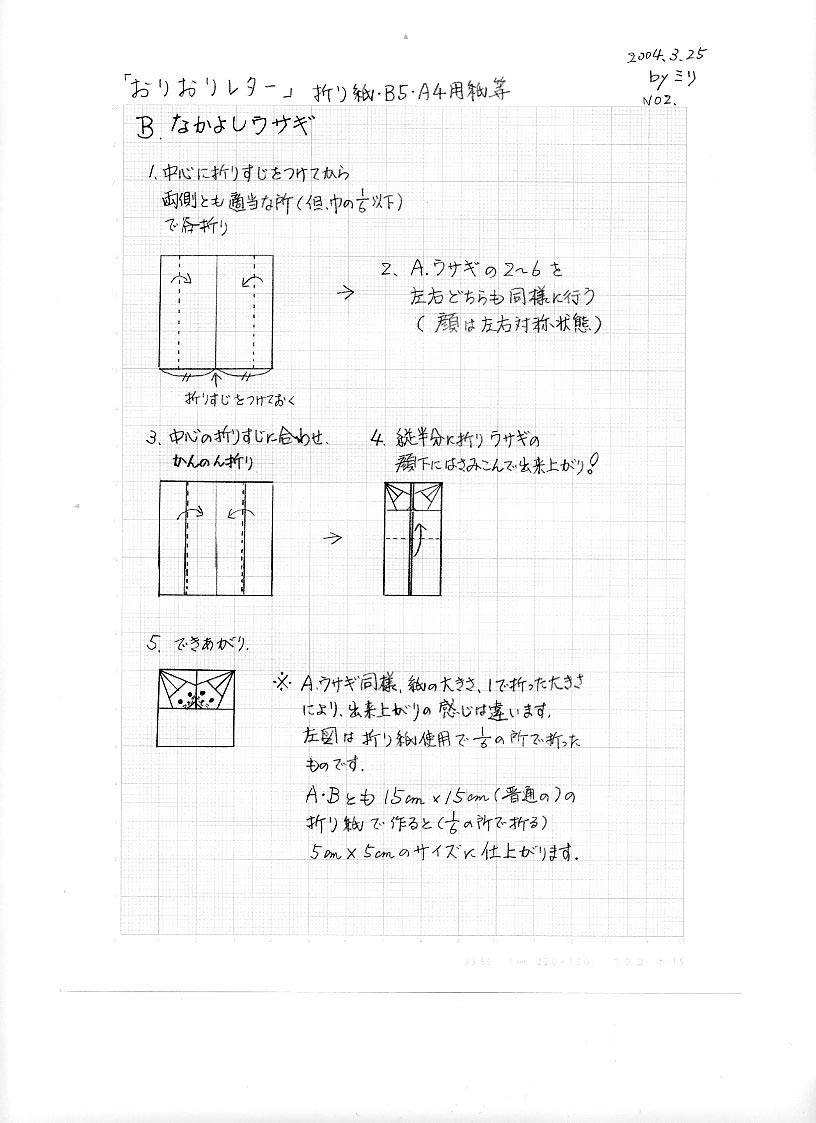 2004.3.25
by ミリ
NO2.
「おりおりレター」 折り紙・B5・A4用紙等
B. なかよしウサギ
1. 中心に折りすじをつけてから
両側とも適当な所(但、巾の1/6以下)
で谷折り
2、A.ウサギの2~6を
左右どちらも同様に行う
(顔は左右対称状態)
→
折りすじをつけておく
3. 中心の折りすじに合わせ、
かんのん折り
4. 縦半分に折りウサギの
顔下にはさみこんで出来上がり!
→
5. できあがり.
※ A.ウサギ同様、紙の大きさ、1で折った大きさ
により、出来上がりの感じは違います。
左図は折り紙使用で1/6の所で折った
ものです.
A・Bとも15cm×15cm(普通の)の
折り紙で作ると(1/6の所で折る)
5cm×5cmのサイズに仕上がります.